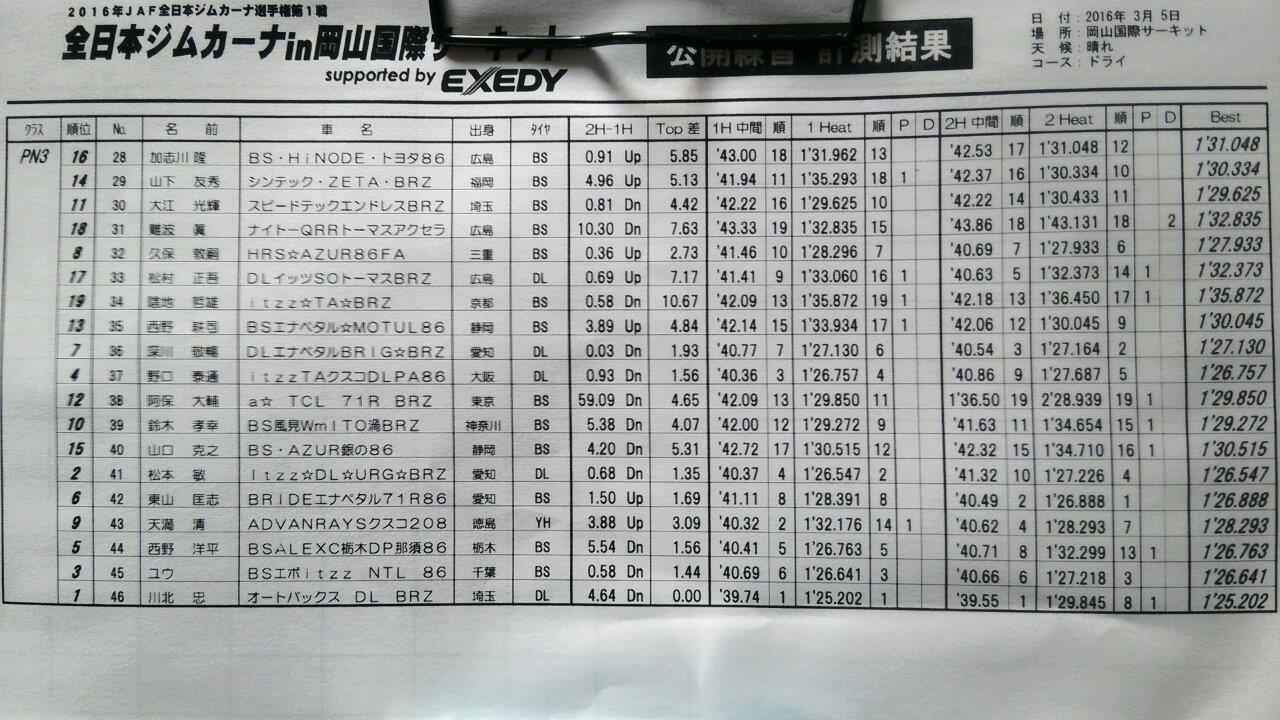 2016年JAF全日本ジムカーナ選手権第1戦
全日本ジムカーナin岡山国際サーキット
supported by EXEDY
公開練習 計測結果
日 付：2016年 3月 5日
場 所：岡山国際サーキット
天 候：晴れ
コース：ドライ
クラス 順位 No. 名 前 車 名 出身 タイヤ 2H-1H Top 差 1H 中間 順 1 Heat 順 P D 2H 中間 順 2 Heat 順 P D Best
PN3 16 28 加志川 隆 BS・HiNODE・トヨタ86 広島 BS 0.91 Up 5.85 '43.00 18 1'31.962 13 '42.53 17 1'31.048 12 1'31.048
14 29 山下 友秀 シンテック・ZETA・BRZ 福岡 BS 4.96 Up 5.13 '41.94 11 1'35.293 18 1 '42.37 16 1'30.334 10 1'30.334
11 30 大江 光輝 スピードテックエンドレスBRZ 埼玉 BS 0.81 Dn 4.42 '42.22 16 1'29.625 10 '42.22 14 1'30.433 11 1'29.625
18 31 難波 眞 ナイトーQRRトーマスアクセラ 広島 BS 10.30 Dn 7.63 '43.33 19 1'32.835 15 '43.86 18 1'43.131 18 2 1'32.835
8 32 久保 敦嗣 HRS☆AZUR86FA 三重 BS 0.36 Up 2.73 '41.46 10 1'28.296 7 '40.69 7 1'27.933 6 1'27.933
17 33 松村 正吾 DLイッツSOトーマスBRZ 広島 DL 0.69 Up 7.17 '41.41 9 1'33.060 16 1 '40.63 5 1'32.373 14 1 1'32.373
19 34 陰地 哲雄 itzz☆TA☆BRZ 京都 BS 0.58 Dn 10.67 '42.09 13 1'35.872 19 1 '42.18 13 1'36.450 17 1 1'35.872
13 35 西野 耕司 BSエナペタル☆MOTUL86 静岡 BS 3.89 Up 4.84 '42.14 15 1'33.934 17 1 '42.06 12 1'30.045 9 1'30.045
7 36 深川 敬暢 DLエナペタルBRIG☆BRZ 愛知 DL 0.03 Dn 1.93 '40.77 7 1'27.130 6 '40.54 3 1'27.164 2 1'27.130
4 37 野口 泰通 itzzTAクスコDLPA86 大阪 DL 0.93 Dn 1.56 '40.36 3 1'26.757 4 '40.86 9 1'27.687 5 1'26.757
12 38 阿保 大輔 a☆ TCL 71R BRZ 東京 BS 59.09 Dn 4.65 '42.09 13 1'29.850 11 1'36.50 19 2'28.939 19 1 1'29.850
10 39 鈴木 孝幸 BS風見WmITO渦BRZ 神奈川 BS 5.38 Dn 4.07 '42.00 12 1'29.272 9 '41.63 11 1'34.654 15 1 1'29.272
15 40 山口 克之 BS・AZUR銀の86 静岡 BS 4.20 Dn 5.31 '42.72 17 1'30.515 12 '42.32 15 1'34.710 16 1 1'30.515
2 41 松本 敏 Itzz☆DL☆URG☆BRZ 愛知 DL 0.68 Dn 1.35 '40.37 4 1'26.547 2 '41.32 10 1'27.226 4 1'26.547
6 42 東山 匡志 BRIDEエナペタル71R86 愛知 BS 1.50 Up 1.69 '41.11 8 1'28.391 8 '40.49 2 1'26.888 1 1'26.888
9 43 天満 清 ADVANRAYSクスコ208 徳島 YH 3.88 Up 3.09 '40.32 2 1'32.176 14 1 '40.62 4 1'28.293 7 1'28.293
5 44 西野 洋平 BSALEXC栃木DP那須86 栃木 BS 5.54 Dn 1.56 '40.41 5 1'26.763 5 '40.71 8 1'32.299 13 1 1'26.763
3 45 ユウ BSエボitzz NTL 86 千葉 BS 0.58 Dn 1.44 '40.69 6 1'26.641 3 '40.66 6 1'27.218 3 1'26.641
1 46 川北 忠 オートバックス DL BRZ 埼玉 DL 4.64 Dn 0.00 '39.74 1 1'25.202 1 '39.55 1 1'29.845 8 1 1'25.202